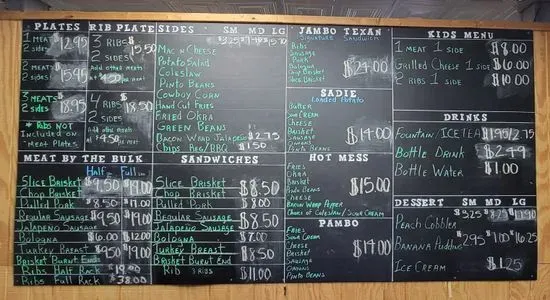 PLATES
1 MEAT
2 SIDES $12.95
2 MEATS
2 SIDES $15.95
3 MEATS
2 SIDES $18.95
* RIBS NOT
INCLUDED ON
MEAT PLATES
RIB PLATE
3 RIBS
2 SIDES $15.50
ADD OTHER MEAT
AT $4.50
4 RIBS
2 SIDES $18.50
ADD OTHER MEATS
AT $4.50
SIDES SM MD LG
MAC N CHEESE
POTATO SALAD
COLESLAW
PINTO BEANS
COWBOY CORN
HAND CUT FRIES
FRIED OKRA
GREEN BEANS
BACON WRAP JALAPEÑO $2.75
CHIPS REG/BBQ $1.50
MEAT BY THE BULK
HALF FULL
SLICE BRISKET $9.50 $19.00
CHOP BRISKET
PULLED PORK $8.50 $17.00
REGULAR SAUSAGE $9.50 $19.00
JALAPEÑO SAUSAGE
BOLOGNA $6.00 $12.00
TURKEY BREAST $9.50 $19.00
BRISKET BURNT END
RIBS HALF RACK $19.00
RIBS FULL RACK $38.00
SANDWICHES
SLICE BRISKET $8.50
CHOP BRISKET
PULLED PORK $8.00
REGULAR SAUSAGE $8.50
JALAPEÑO SAUSAGE
BOLOGNA $7.00
TURKEY BREAST $8.50
BRISKET BURNT END
RIB 3 RIBS $11.00
JAMBO TEXAN
SIGNATURE SANDWICH
RIBS
SAUSAGE
PORK
BOLOGNA
CHOP BRISKET
SLICE BRISKET
$24.00
SADIE
LOADED POTATO
BUTTER
SOUR CREAM
CHEESE
BRISKET
SAUSAGE
$14.00
HOT MESS
FRIES
OKRA
BRISKET
PINTO BEANS
CHEESE
BACON WRAP PEPPER
CHOICE OF COLESLAW / SOUR CREAM
$15.00
PAMBO
FRIES
SOUR CREAM
CHEESE
BRISKET
SAUSAGE
ONIONS
PINTO BEANS
$14.00
KIDS MENU
1 MEAT 1 SIDE $8.00
GRILLED CHEESE 1 SIDE $6.00
2 RIBS 1 SIDE $10.00
DRINKS
FOUNTAIN/ICE TEA $1.95/2.75
BOTTLE DRINK $2.49
BOTTLE WATER $1.00
DESSERT SM MD LG
PEACH COBBLER $3.25
BANANA PUDDING $2.95 $7.00 $16.25
ICE CREAM $1.25